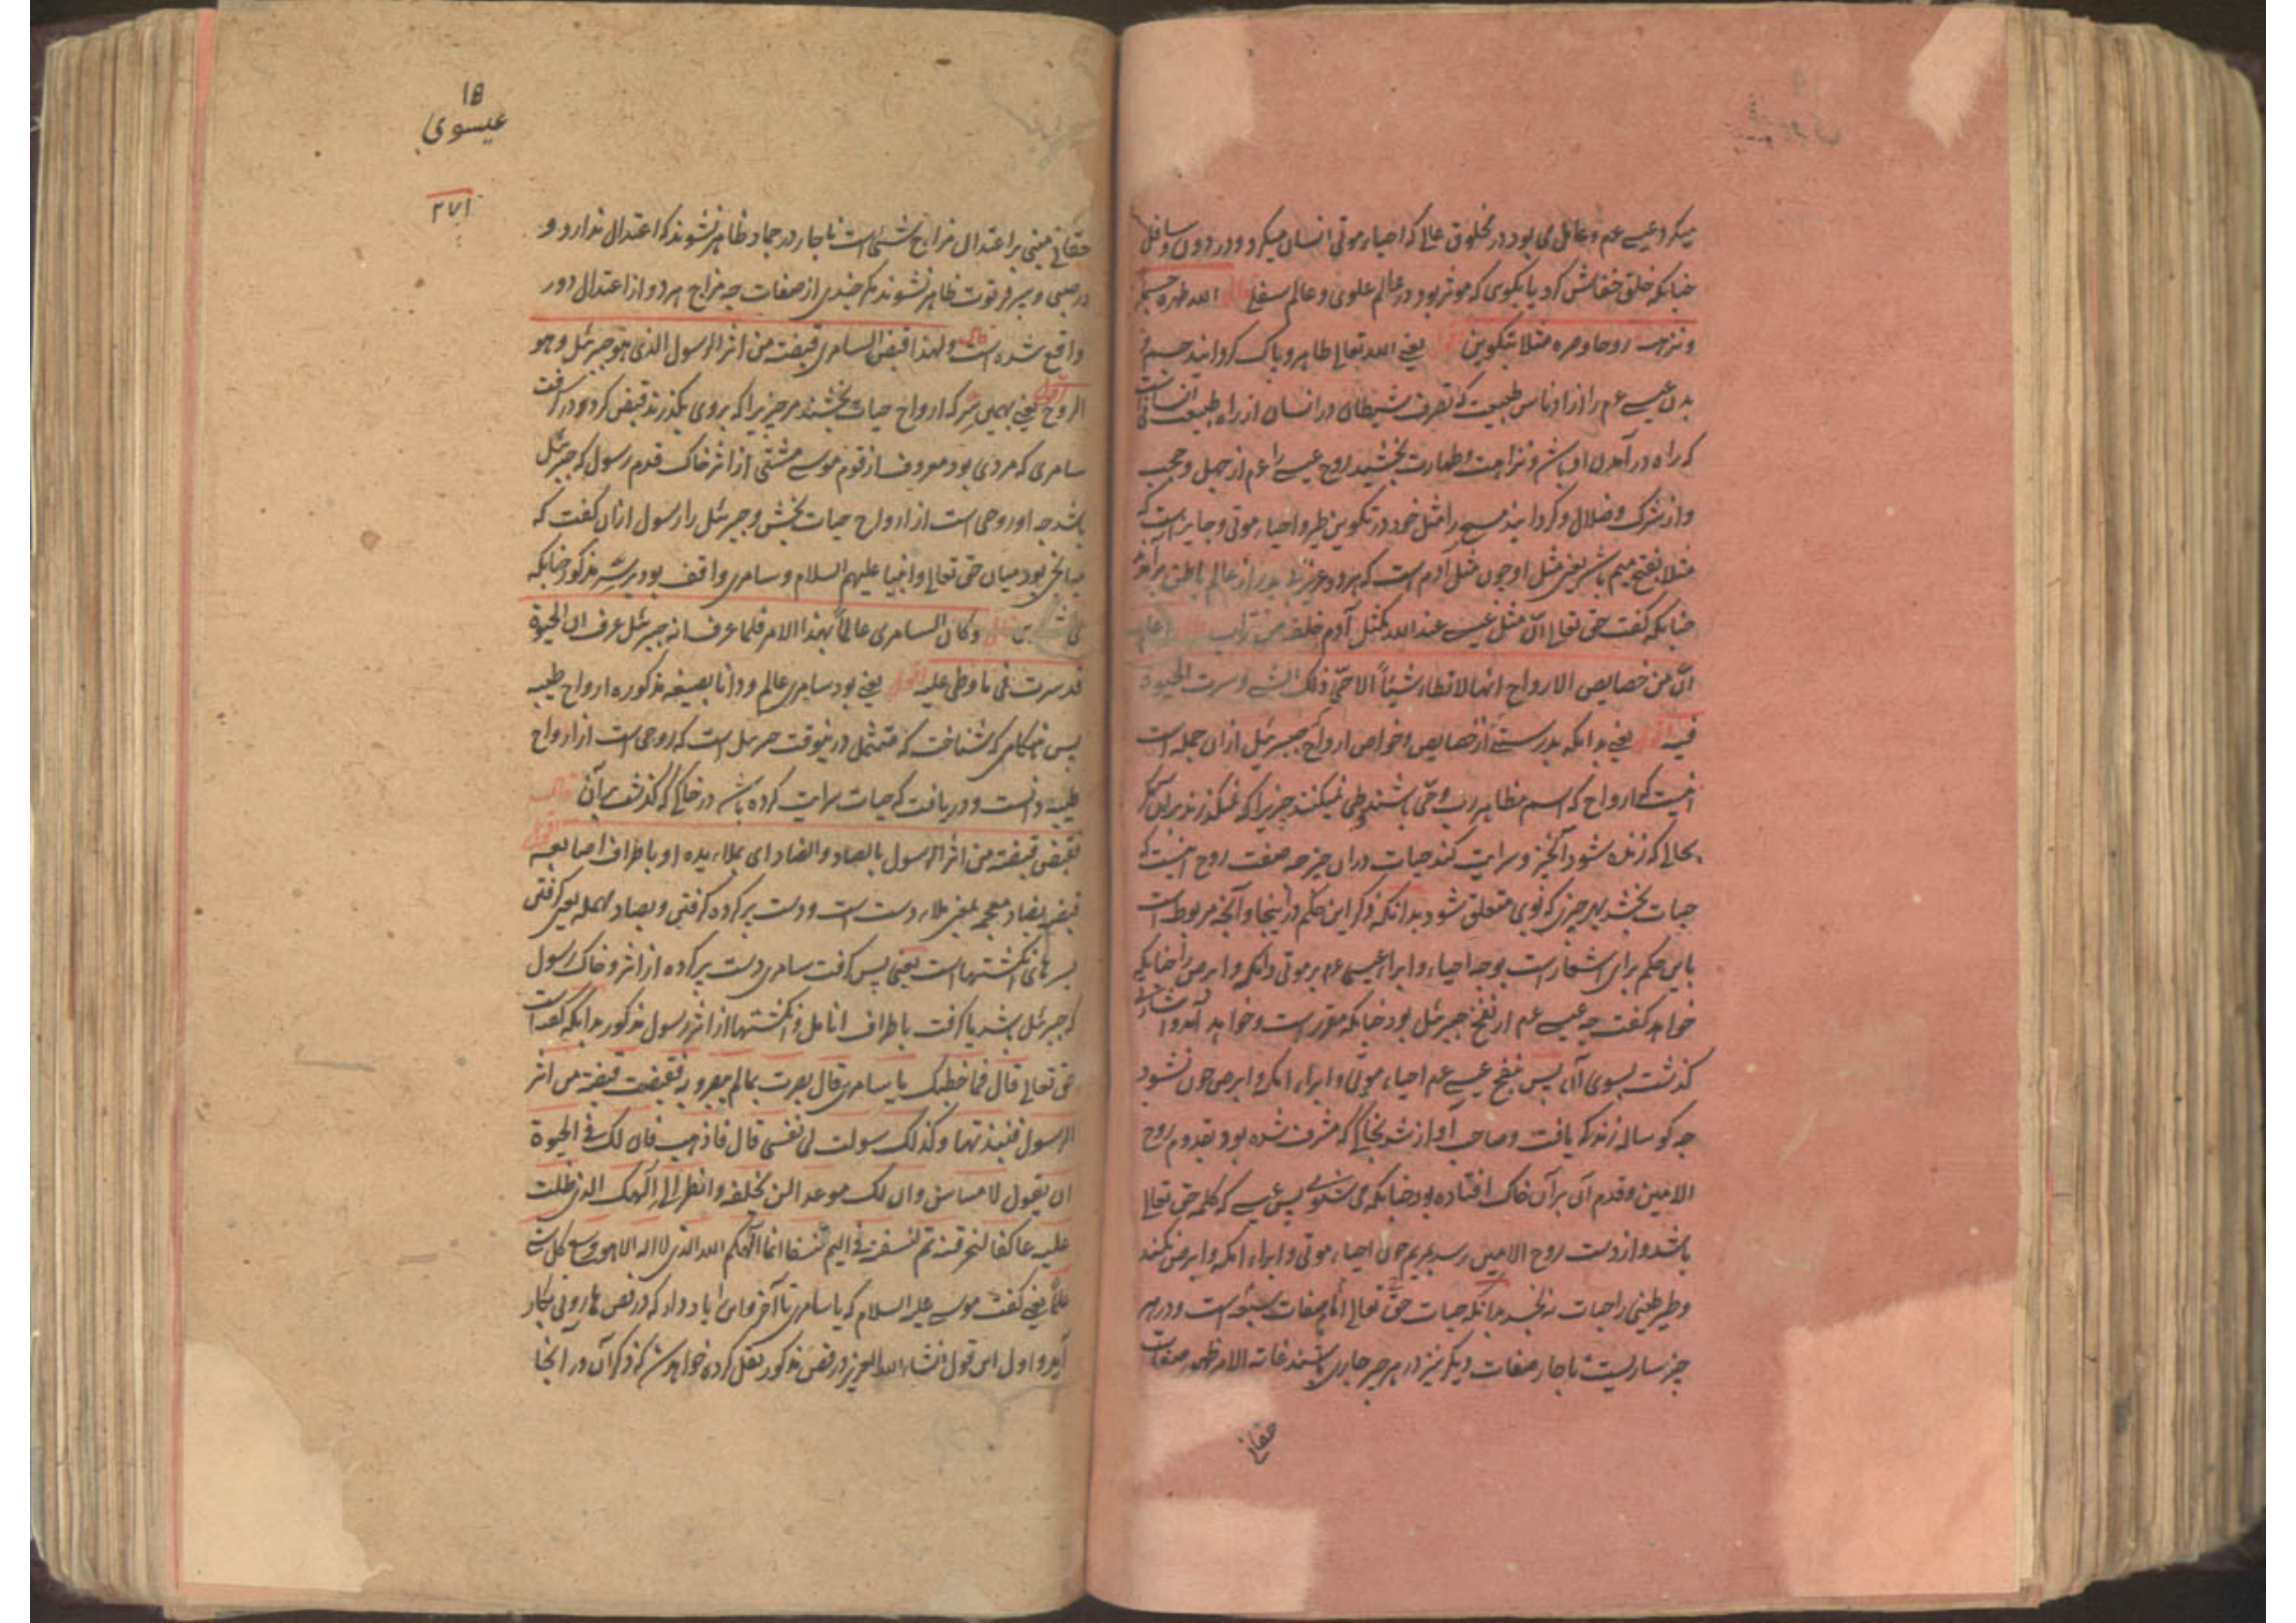 میکرد عیسے عم و عامل می بود در مخلوق عالی که احیاء موتی انسان میکرد و در دون و سافل
چنانکه خلق خفاش کرد یا بگوی که موثر بود در عالم علوی و عالم سفلے قال الله طهره جسما
و نزهه روحا وصیره مثلا بتکوین اقول یعنے الله تعالے طاهر و پاک گردانید جسم و
بدن عیسے عم را از ادناس طبیعت که تصرف شیطان در انسان از راه طبیعت انسانست
که راه در آمدن او باشد و نزاهت و طهارت بخشید روح عیسے را عم از جهل و حجب
و از شرک و ضلال و گردانید مسیح را مثل خود در تکوین طیر و احیاء موتی و جایز است که
مثلا بفتح میم باشد یعنی مثل او چون مثل آدم است که هر دو بے پدر از عالم باطن بر آمدند
چنانکه گفت حق تعالے انّ مثل عیسے عند الله کمثل آدم خلقه من تراب قال اعلم
انّ من خصایص الارواح انها لا تطاء شیئاً الا حیّ ذلک الشے و سرت الحیوة
فیه اقول یعنے بدانکه بدرستے از خصایص و خواص ارواح که جبرئیل ازان جمله است
اینست که ارواح که اسم مظاهر رب و حیّ باشند وطی نمیکنند چیزیرا که نمیگذرند بران مگر
بحالے که زنده شود آنچیز و سرایت کند حیات دران چیز چه صفت روح اینست که
حیات بخشد بهر چیزی که بوی متعلق شود بدانکه ذکر این حکم در اینجا و آنچه مربوط است
باین حکم برای اشعار است بوجه احیاء و ابراء عیسی عم بر موتی و اکمه و ابرص را چنانکه
خواهد گفت چه عیسے عم از نفخ جبرئل بود چنانکه مقرر است و خواهد آمد و اشارتے
گذشت بسوی آن پس بنفخ عیسے عم احیاء موتی و ابراء اکمه و ابرص چون نشود
چه گوساله زندگی یافت و صاحب آواز شد بخاکے که مشرف شده بود بقدوم روح
الامین و قدم آن بر آن خاک افتاده بود چنانکه می شنوے پس عیسے که کلمه حق تعالے
باشد و از دست روح الامین رسد بمریم چون احیاء موتی و ابراء اکمه و ابرص نکند
و طیر طینی را حیات نه بخشد بدانکه حیات حقّ تعالے امام صفات سبعه است و در هر
چیز ساریست ناچار صفات دیگر نیز در هر چیز جاری باشند غایة الامر ظهور صفات
حقانے
15
عیسوی
۲۷۱
حقانے مبنی بر اعتدال مزاج شئے است ناچار در جماد ظاهر نشوند که اعتدال ندارد و
در صبی و پیر فرتوت ظاهر نشوند مگر چندی از صفات چه مزاج هر دو از اعتدال دور
واقع شده است قال ولهذا قبض السامری قبضت من اثر الرسول الذی هو جبرئل وهو
الروح اقول یعنے بهمین سر که ارواح حیات بخشند مر چیزیرا که بروی بگذرند قبض کرد و در گرفت
سامری که مردی بود معروف از قوم موسے مشتی از اثر خاک قدم رسول که جبرئل
باشد چه او روحی است از ارواح حیات بخش و جبرئل را رسول ازان گفت که
میانجی بود میان حق تعالے و انبیا علیهم السلام و سامری واقف بود بر سر مذکور چنانکه
قال وکان السامری عالماً بهذا الامر فلما عرف انه جبرئل عرف ان الحیوة
قد سرت فی ما وطی علیه اقول یعنے بود سامری عالم و دانا بصیغه مذکوره ارواح طیبه
پس هنگامی که شناخت که متمثل در نیوقت جبرئل است که روحی است از ارواح
طیبه دانست و دریافت که حیات سرایت کرده باشد در خاکے که گذشت بر آن قال
فقبض قبضة من اثر الرسول بالصاد والضاد ای بملاء یده او باطراف اصابعه اقول
قبض بضاد معجمه بمعنی ملاء دست است و دست پر کرده گرفتن و بصاد مهمله یعنی گرفتن
بسرهای انگشتها است یعنی پس گرفت سامری دست پر کرده از اثر و خاک رسول
که جبرئل باشد یا گرفت باطراف انامل و انگشتها از اثر رسول مذکور بدانکه گفته است
حق تعالے قال فما خطبک یا سامری قال بصرت بمالم یبصروا به فقبضت قبضة من اثر
الرسول فنبذتها وکذلک سولت لی نفسی قال فاذهب فان لک فی الحیوة
ان یقول لا مساس وان لک موعدا لن تخلفه وانظر الی آلهک الذی ظلت
علیه عاکفا لنحرقنه ثم لننسفنه فی الیم نسفا انما آلهکم الله الذی لا اله الا هو وسع کل شے
علماً یعنے گفت موسے علیه السلام که یا سامری تا آخر و این را یاد دار که در فص هارونی بکار
آید و اول این قول انشاء الله العزیز در فص مذکور نقل کرده خواهد شد که ذکر آن در آنجا